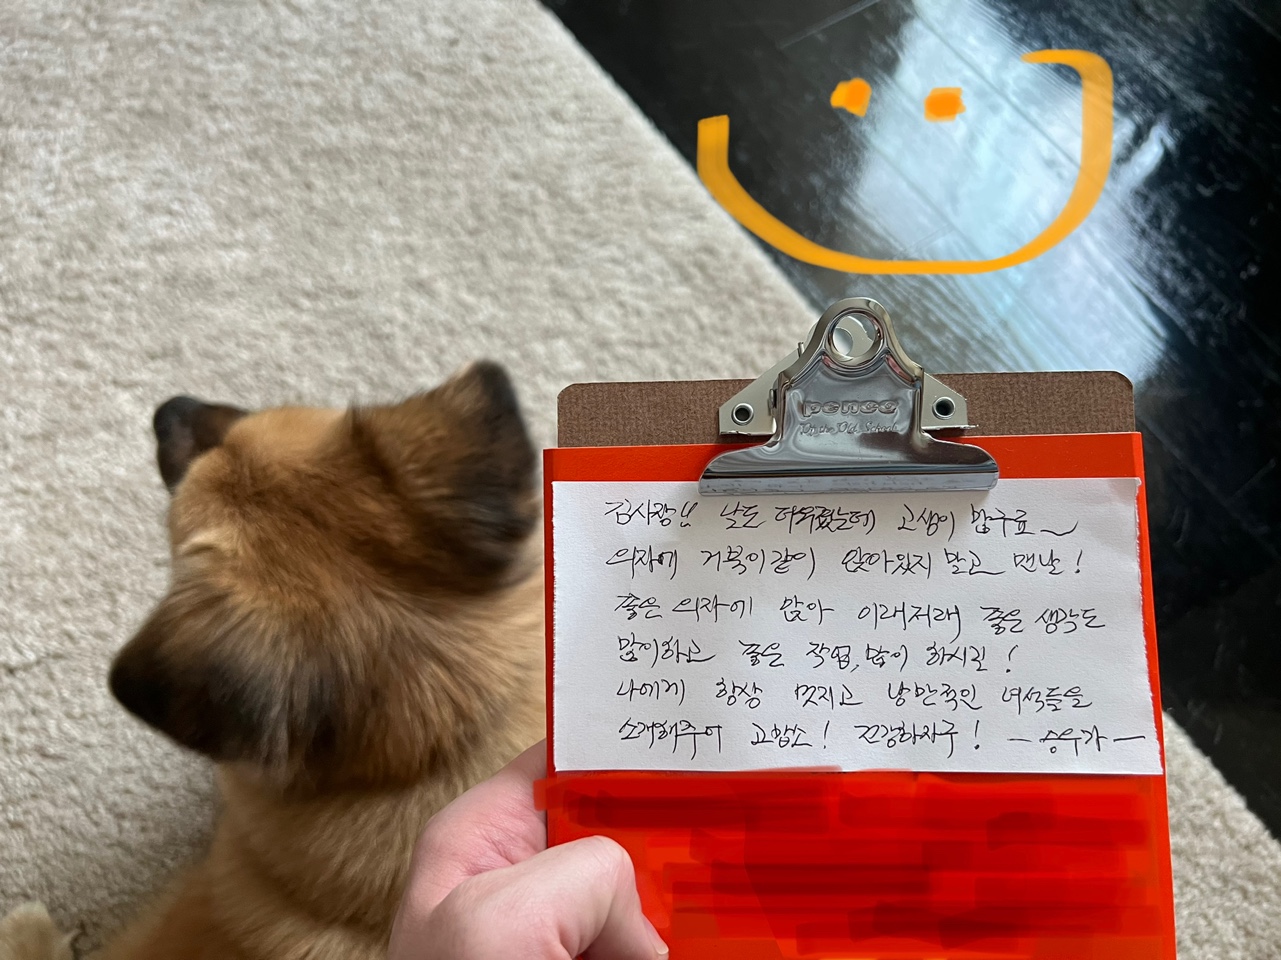 penco
김사랑!! 날도 더워졌는데 고생이 많구료~
의자에 거북이같이 앉아있지 말고 맨날!
좋은 의자에 앉아 이래저래 좋은 생각도
많이하고 좋은 작업, 많이 하시길!
나에게 항상 멋지고 낭만적인 녀석들을
소개해주어 고맙소! 건강하자구! - 승우가 -